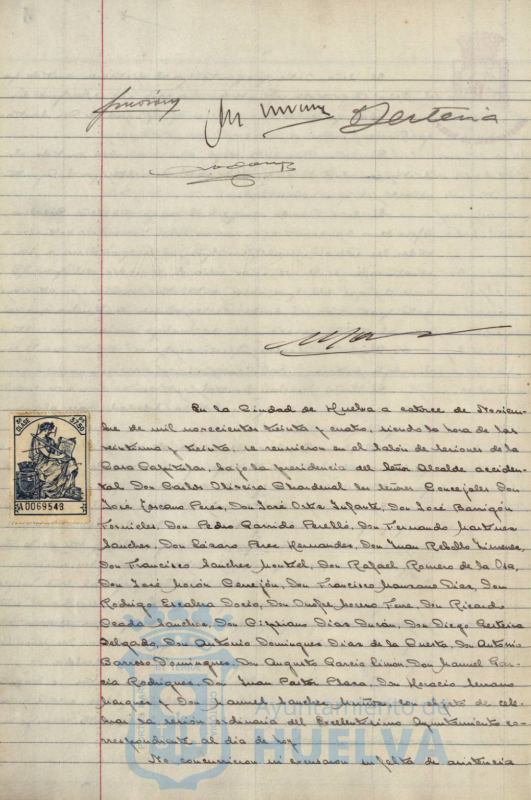 Bertena
En la Ciudad de Huelva a catorce de Noviem-
bre de mil novecientos treinta y cuatro, siendo la hora de las
veintiuna y treinta, se reunieron en el Salón de Sesiones de la
Casa Capitular, bajo la presidencia del Señor Alcalde acciden-
tal Don Carlos Oliveira Chardenal los señores Concejales Don
José Lozcano Perea, Don José Ortiz Infante, Don José Barrigón
Fornieles, Don Pedro Garrido Perelló, Don Fernando Martinez
Sanchez, Don Lázaro Perez Hernandez, Don Juan Rebollo Jimenez,
Don Francisco Sanchez Montiel, Don Rafael Romero de la Osa,
Don José Morón Cerrejón, Don Francisco Manzano Diaz, Don
Rodrigo Escalera Don Onofre Moreno Don Ricardo
Sanchez, Don Cipriano Diaz Durán, Don Diego Berteria
Delgado, Don Antonio Dominguez Diaz de la Cuesta, Don Antonio
Barroso Dominguez, Don Augusto Garcia Limón, Don Manuel Gar-
cia Rodriguez, Don Juan Pastor Plaza, Don Horacio Serrano
Marquez y Don Manuel Sanchez Muñoz, con objeto de cele-
brar la sesión ordinaria del Excelentísimo Ayuntamiento co-
rrespondiente al día de hoy.
No concurrieron ni excusaron su falta de asistencia
CLASE
A0069549
Ayuntamiento de
HUELVA